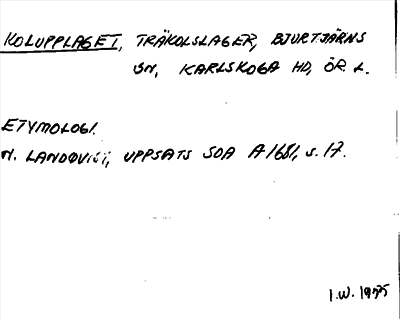 KOLUPPLAGET, TRÄKOLSLAGER, BJURTJÄRNS
SN, KARLSKOGA HD, ÖR. L.
ETYMOLOGI.
N. LANDQVIST, UPPSATS SOA A1681, s. 17.
I.W. 1975